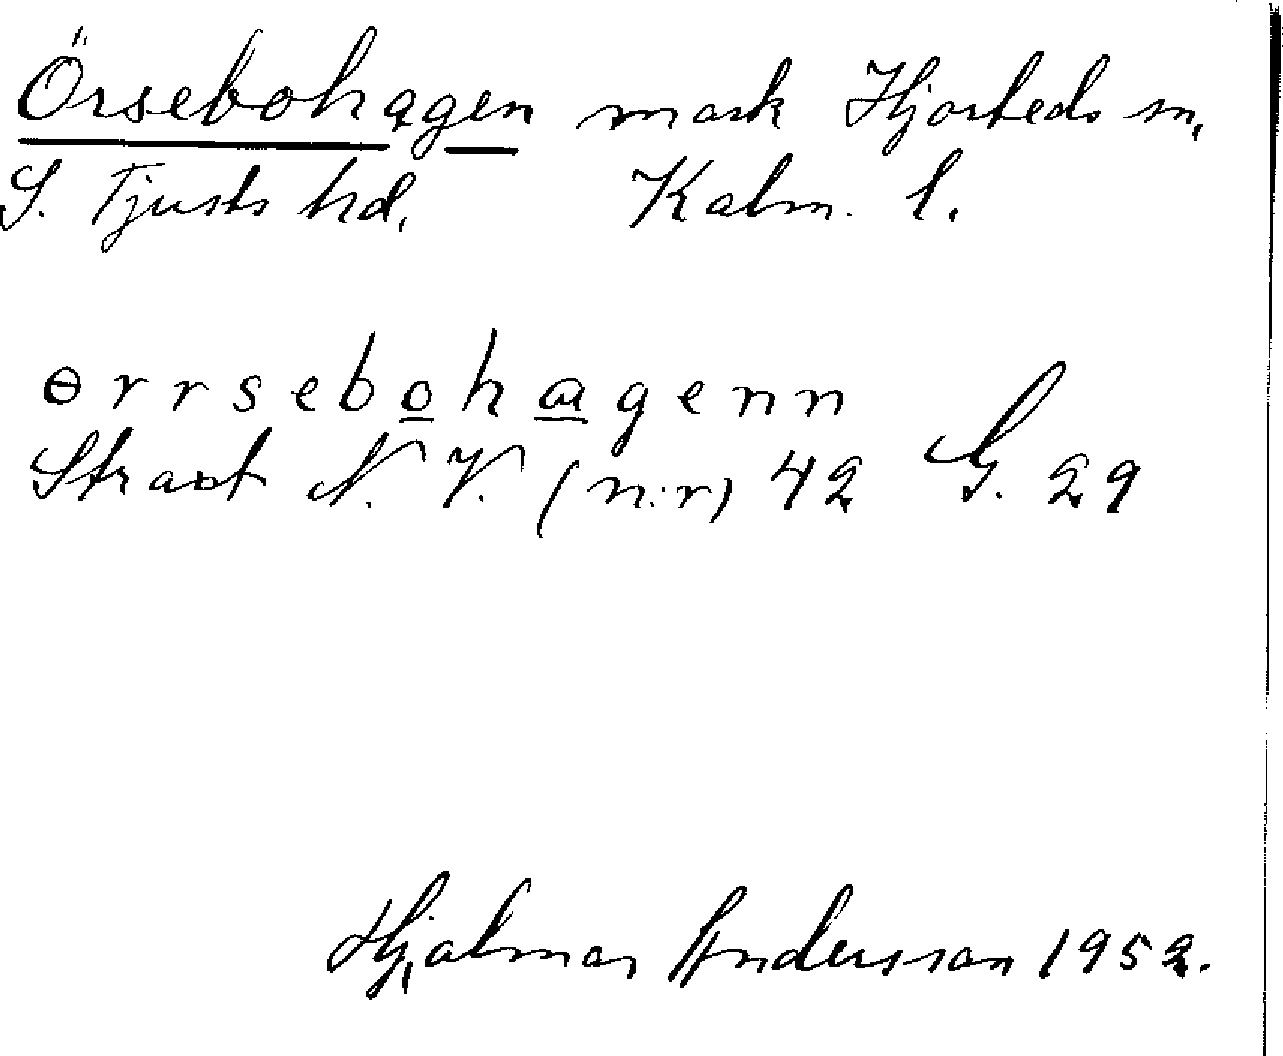 Örsebohagen mark Hjorteds sn,
S. Tjusts hd. Kalm. l.
ɵrrsebohagenn
Strax N. V. (n:r) 42 G. 29
Hjalmar Andersson 1952.